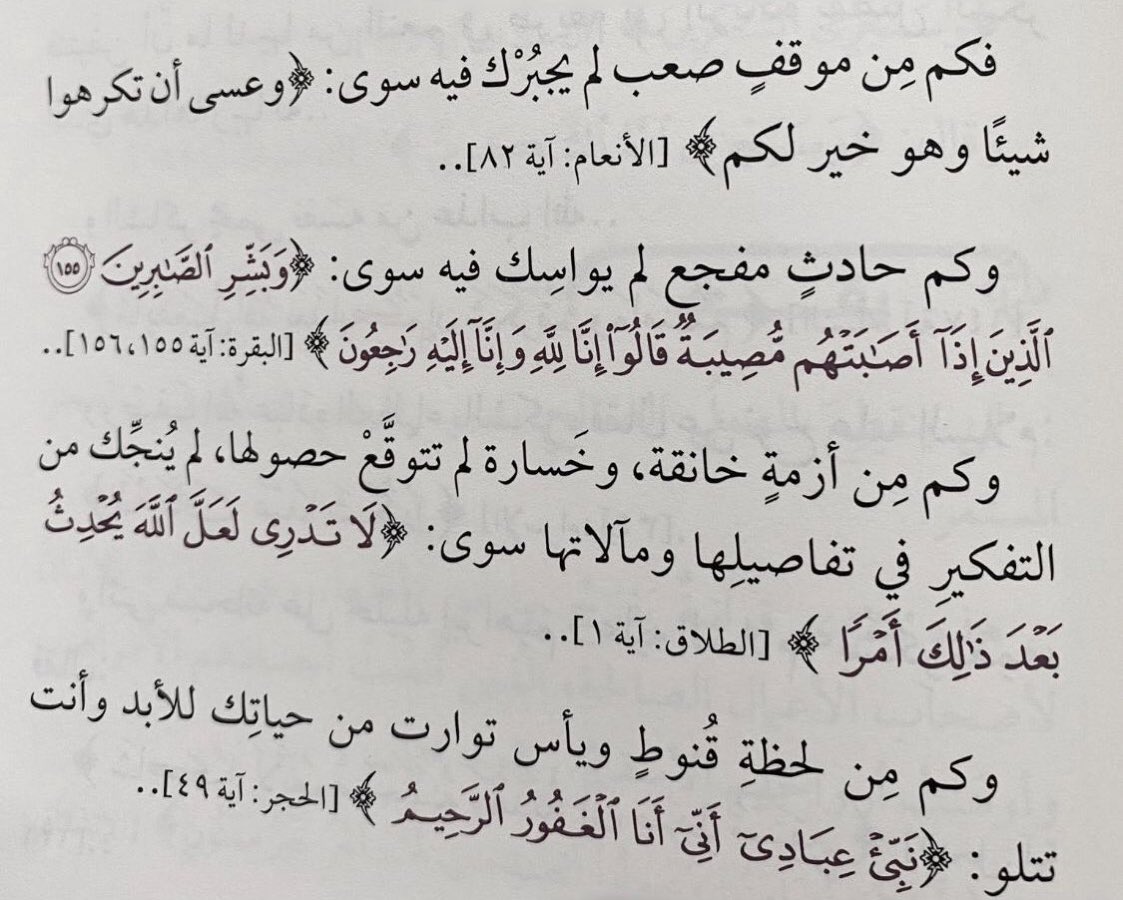 فكم مِن موقفٍ صعب لم يجبُرْك فيه سوى: ﴿وعسى أن تكرهوا
شيئًا وهو خير لكم﴾ [الأنعام: آية ٨٢]..
وكم حادثٍ مفجع لم يواسِك فيه سوى: ﴿وَبَشِّرِ ٱلصَّـٰبِرِينَ ١٥٥
ٱلَّذِينَ إِذَآ أَصَـٰبَتْهُم مُّصِيبَةٌ قَالُوٓا۟ إِنَّا لِلَّهِ وَإِنَّآ إِلَيْهِ رَٰجِعُونَ﴾ [البقرة: آية ١٥٥، ١٥٦]..
وكم مِن أزمةٍ خانقة، وخَسارة لم تتوقَّعْ حصولها، لم يُنجِّك من
التفكيرِ في تفاصيلِها ومآلاتها سوى: ﴿لَا تَدْرِى لَعَلَّ ٱللَّهَ يُحْدِثُ
بَعْدَ ذَٰلِكَ أَمْرًا﴾ [الطلاق: آية ١]..
وكم مِن لحظةِ قُنوطٍ ويأس توارت من حياتِك للأبد وأنت
تتلو: ﴿نَبِّئْ عِبَادِىٓ أَنِّىٓ أَنَا ٱلْغَفُورُ ٱلرَّحِيمُ﴾ [الحجر: آية ٤٩]..